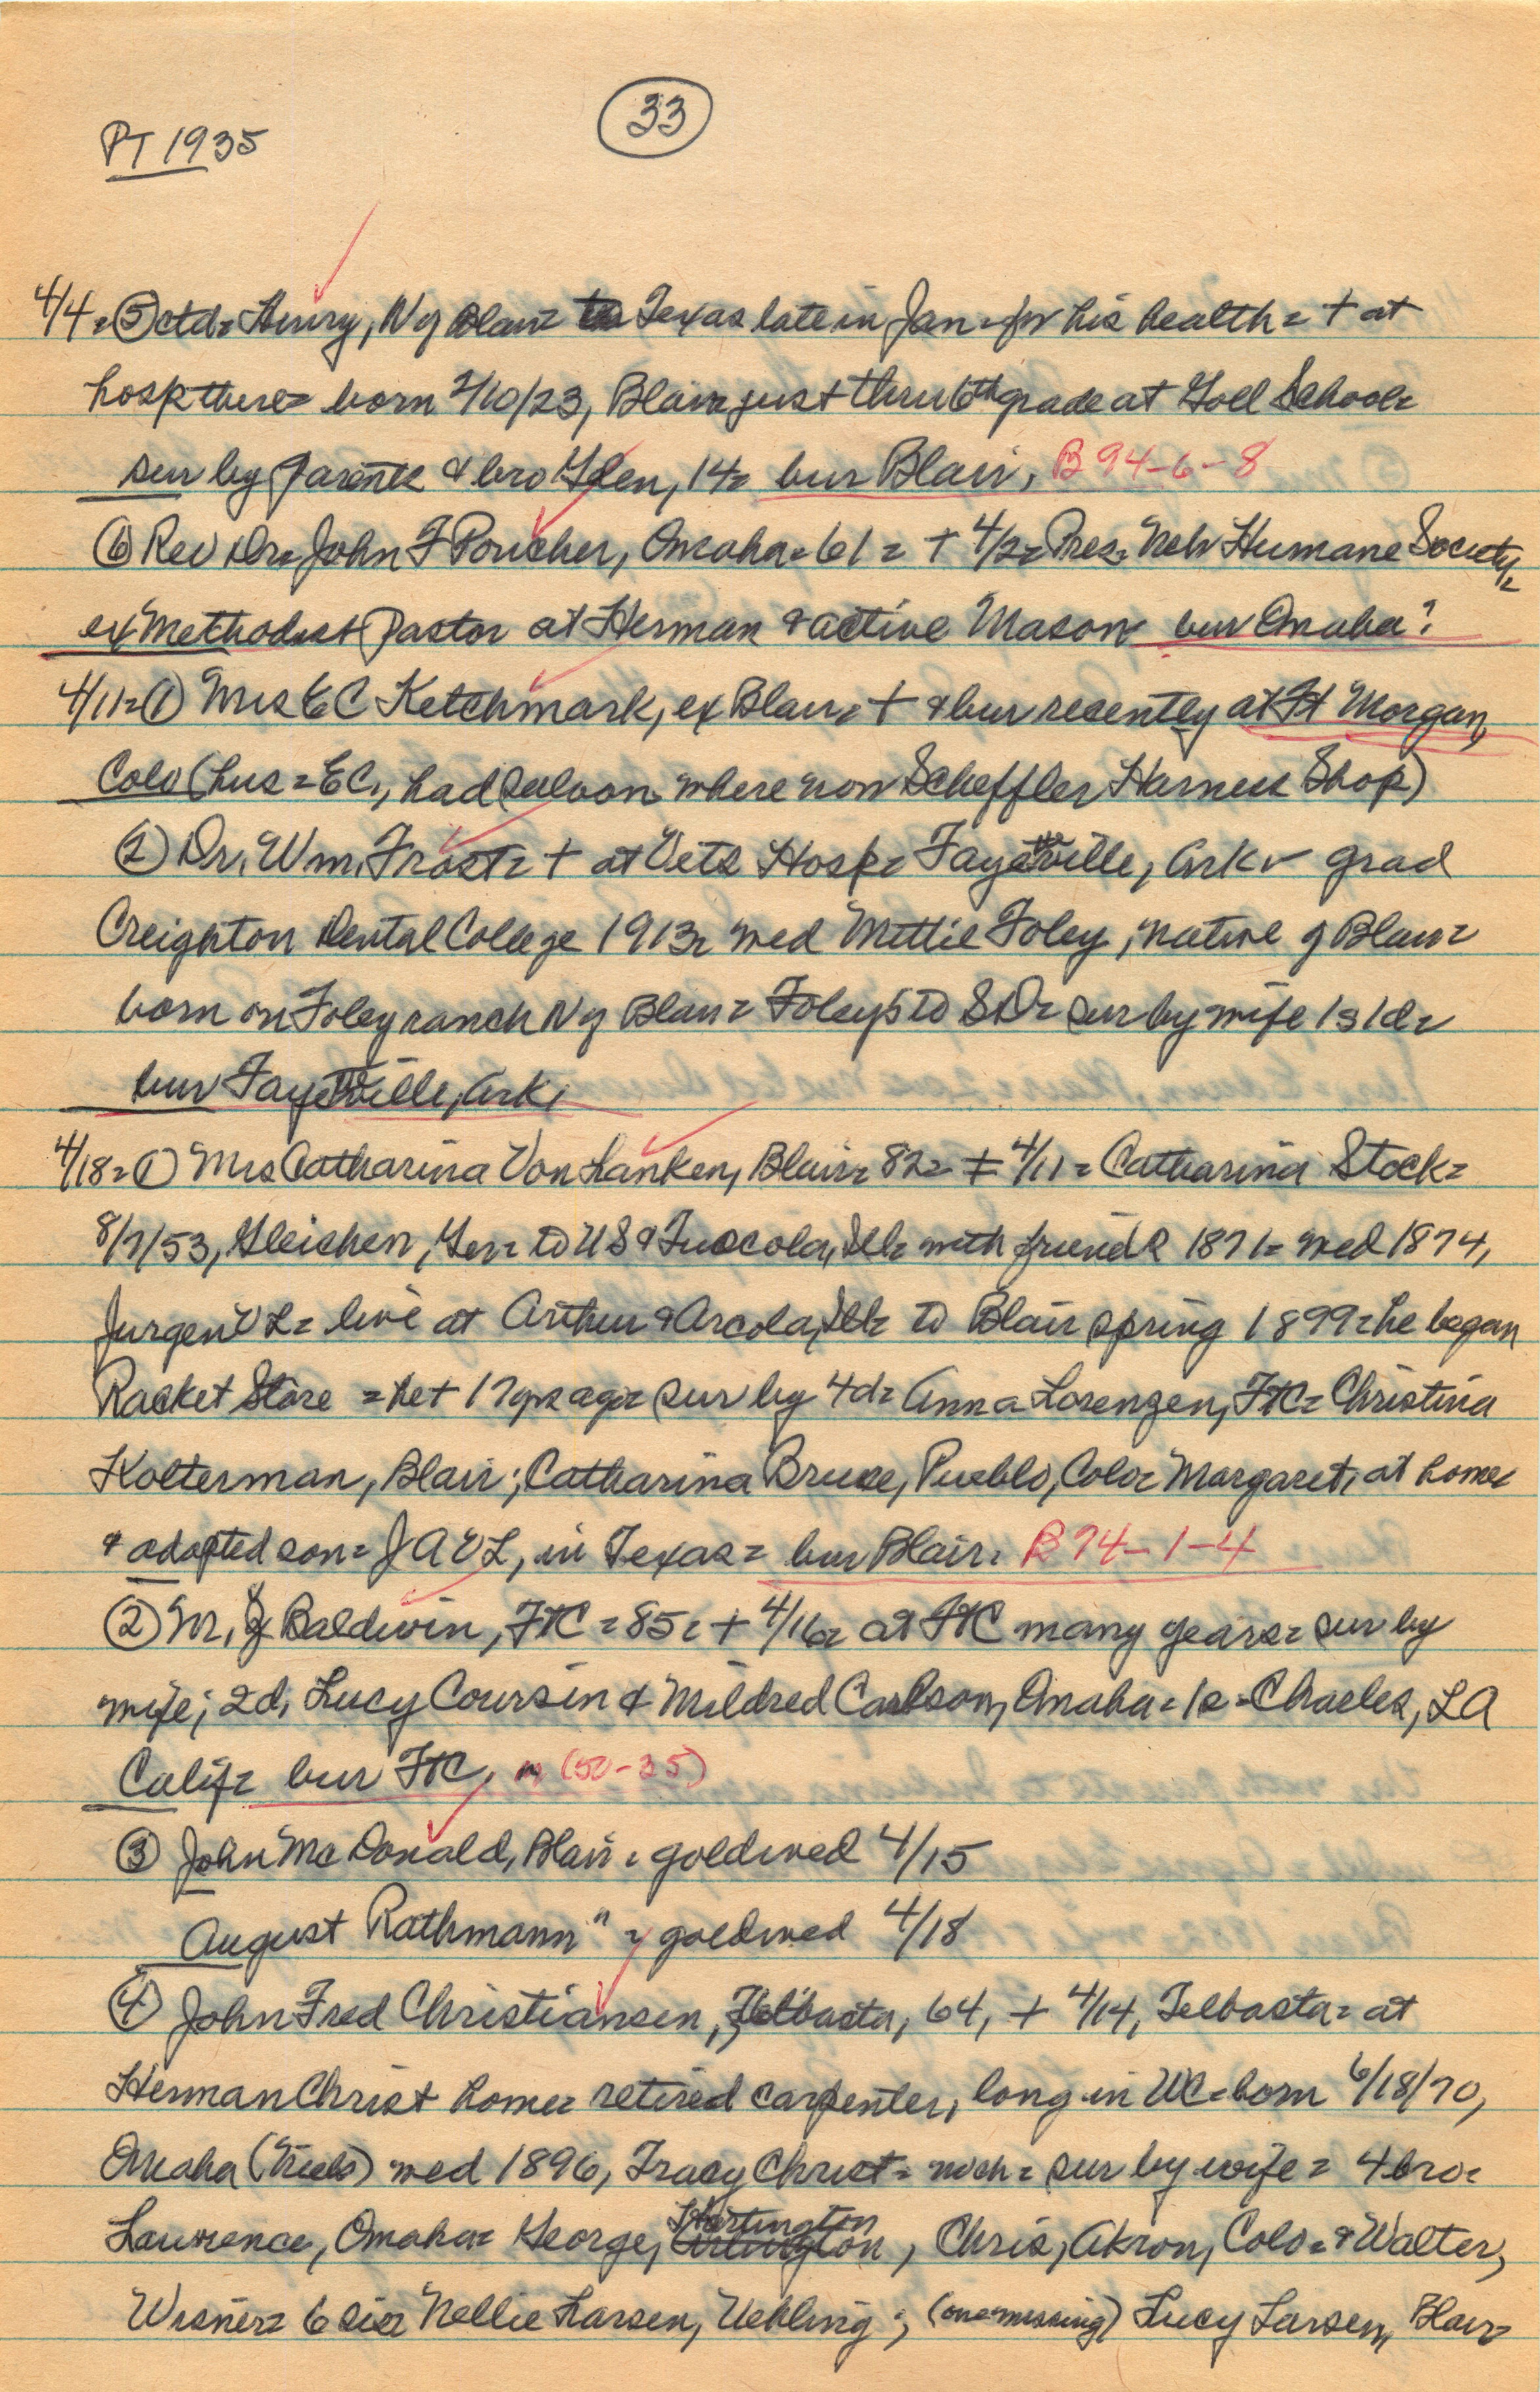 33
PT 1935
4/4 = ⑤ ctd = Henry, N of Blair = to Texas late in Jan = for his health = + at
hosp there = born 2/10/23, Blair just thru 6th grade at Goll School =
sur by parents & bro Glen, 14 = bur Blair, B 94-6-8
⑥ Rev Dr = John F Poucher, Omaha = 61 = + 4/2 = Pres = Neb Humane Society =
ex Methodist Pastor at Herman & active Mason bur Omaha?
4/11 = ① Mrs E C Ketchmark, ex Blair = + & bur recently at Ft Morgan,
Colo (hus = EC, had saloon where now Scheffler Harness Shop)
② Dr. Wm. Frost = + at Vets Hosp = Fayetteville, Ark = grad
Creighton Dental College 1913 = wed Mettie Foley, native of Blair =
born on Foley ranch N of Blair = Foleys to SD = sur by wife 1s 1d =
bur Fayetteville, Ark,
4/18 = ① Mrs Catharina Von Lanken, Blair = 82 = + 4/11 = Catharina Stock =
8/7/53, Gleichen, Ger = to US & Tuscola, Ill = with friends 1871 = wed 1874,
Jurgen VL = live at Arthur & Arcola, Ill = to Blair spring 1899 = he began
Racket Store = he + 17 yrs ago = sur by 4d = Anna Lorenzen, FtC = Christina
Kolterman, Blair; Catharina Bruse, Pueblo, Colo = Margaret, at home
& adopted son = J A VL, in Texas = bur Blair. B 74-1-4
② M. J Baldwin, FtC = 85 = + 4/16 = at FtC many years = sur by
wife; 2d, Lucy Coursin & Mildred Carlson, Omaha = 1s = Charles, LA
Calif = bur FtC, (50-35)
③ John McDonald, Blair = gold wed 4/15
August Rathmann " = gold wed 4/18
④ John Fred Christiansen, Telbasta, 64, + 4/14, Telbasta = at
Herman Christ home = retired carpenter, long in WC = born 6/18/70,
Omaha wed 1896, Tracy Christ = no ch = sur by wife = 4 bro =
Lawrence, Omaha = George, Hartington, Chris, Akron, Colo = & Walter,
Wisner = 6 sis Nellie Larsen, Uehling; (one missing) Lucy Larsen, Blair =